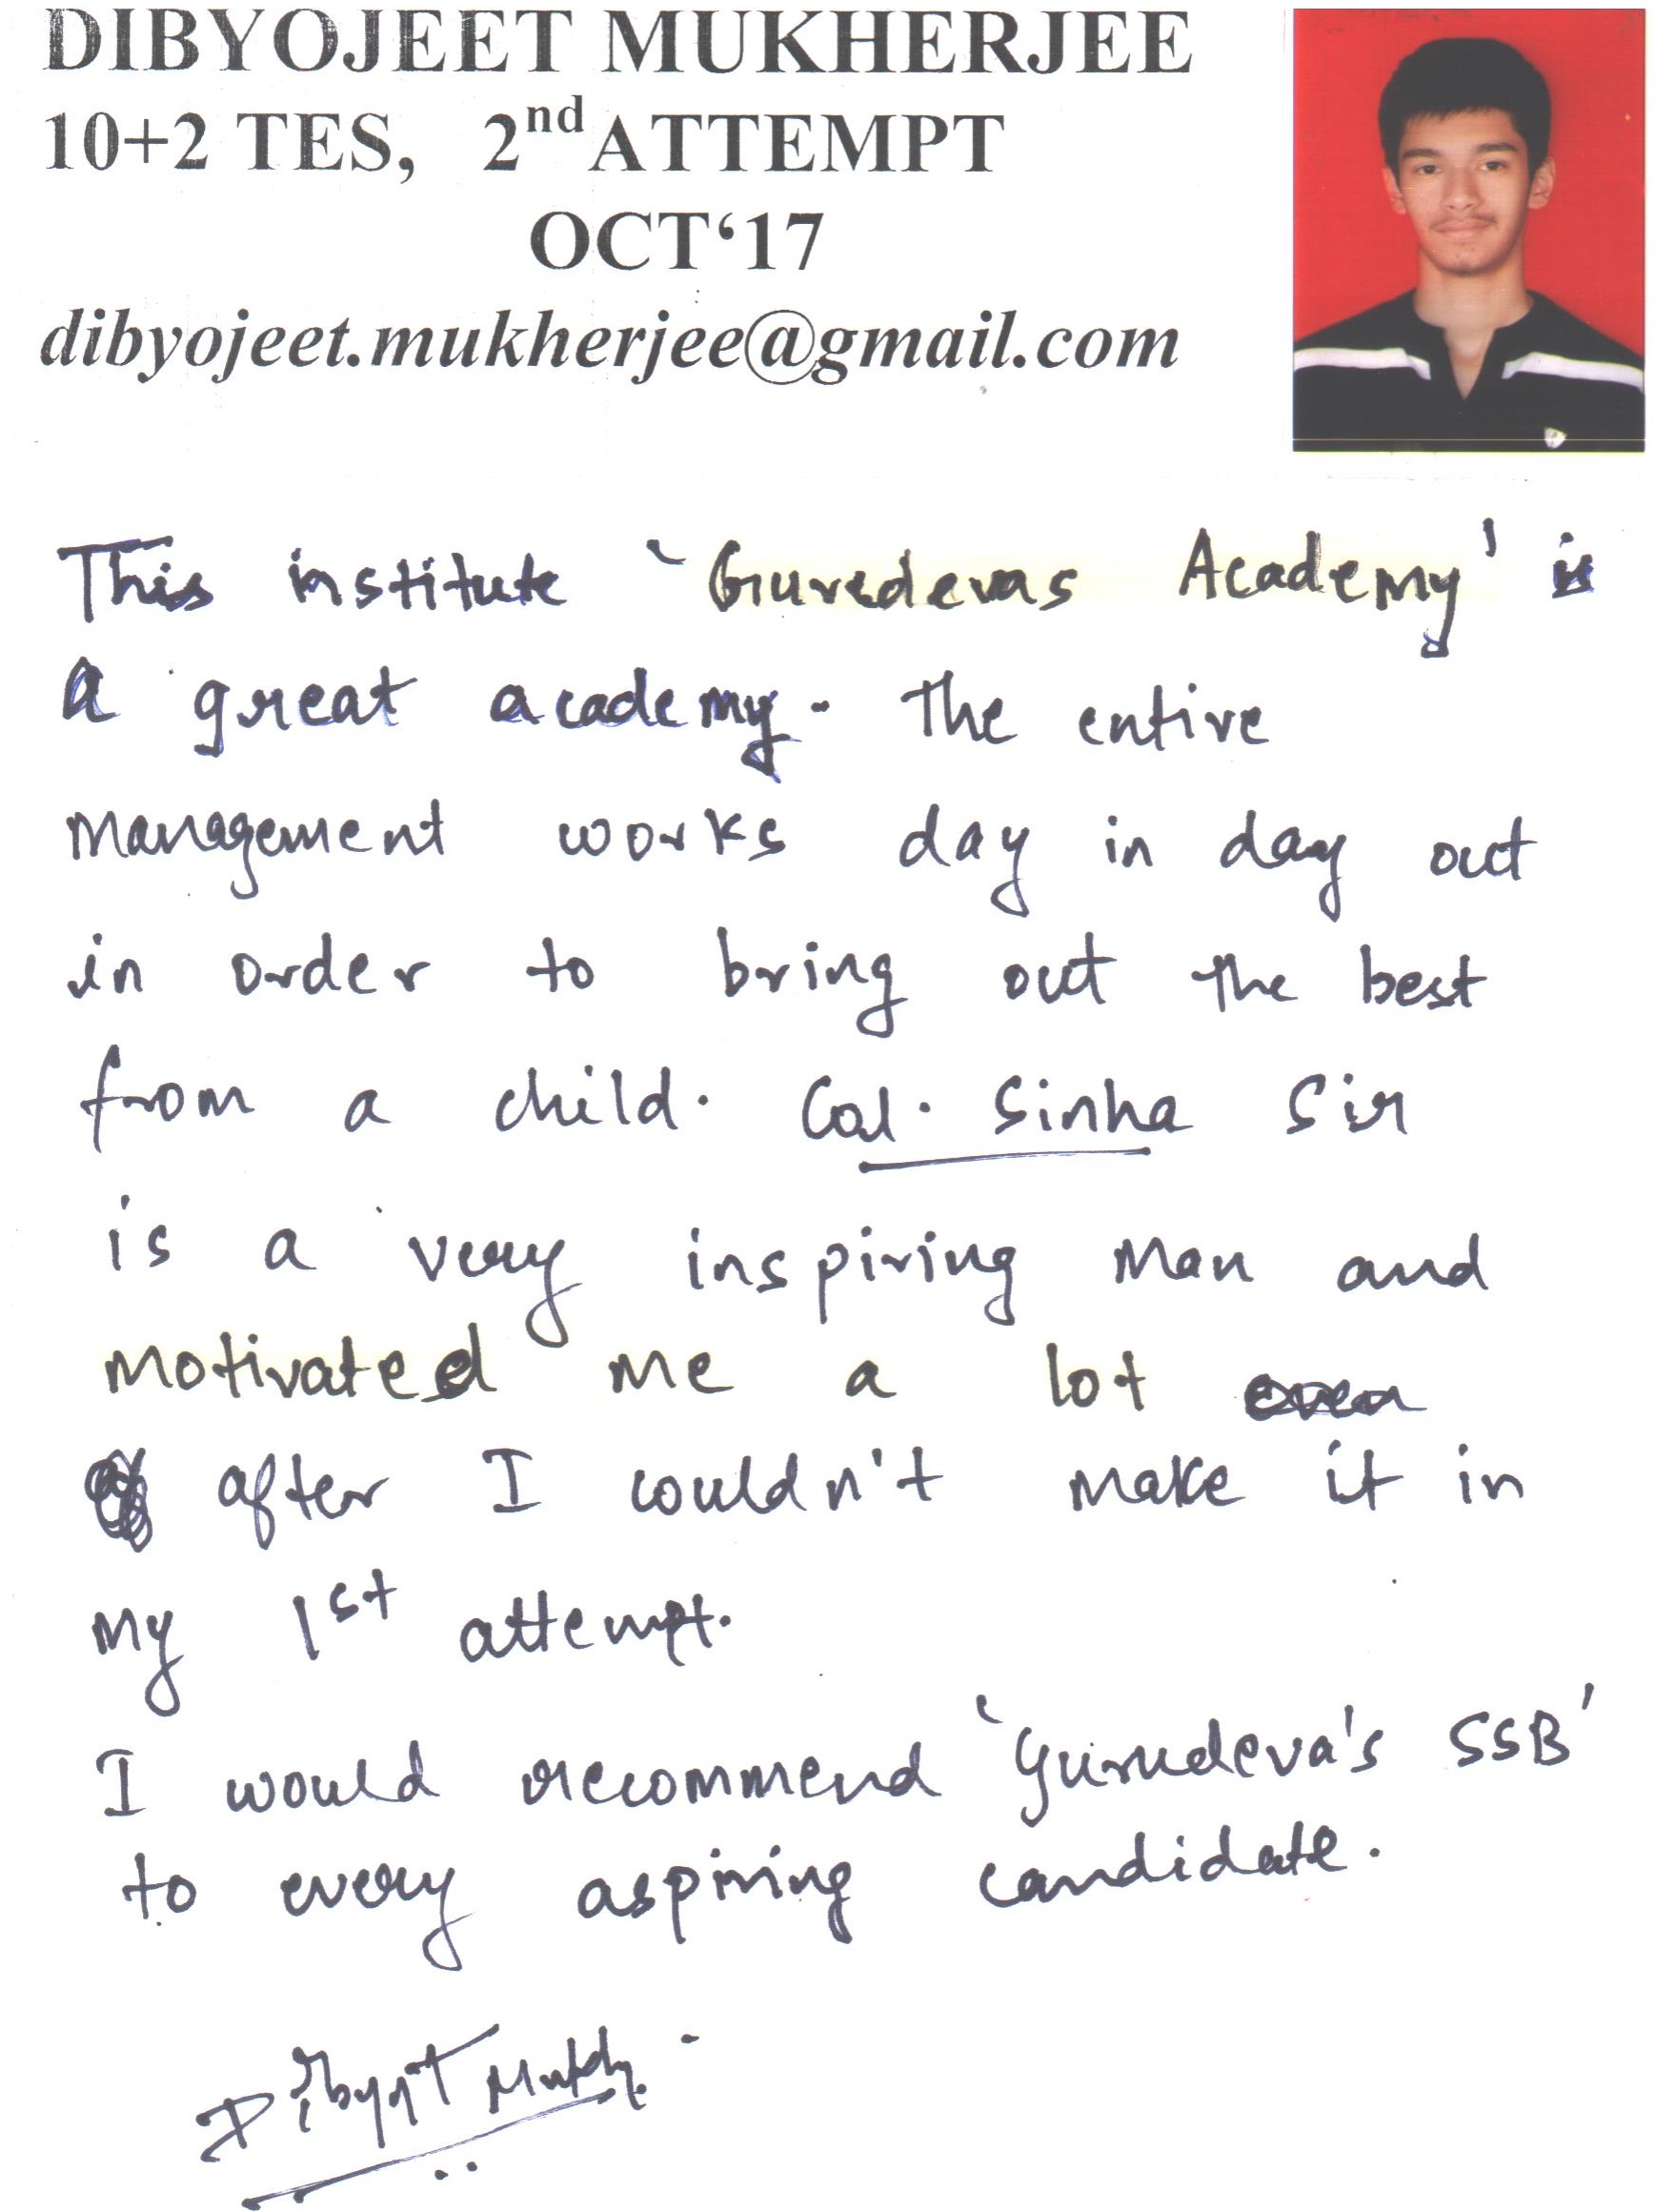 DIBYOJEET MUKHERJEE
10+2 TES, 2nd ATTEMPT
OCT‘17
dibyojeet.mukherjee@gmail.com
This institute ‘Guredevas Academy’ is
a great academy. The entire
management works day in day out
in order to bring out the best
from a child. Col. Sinha Sir
is a very inspiring man and
motivated me a lot even
after I couldn't make it in
my 1st attempt.
I would recommend ‘Gurudeva's SSB’
to every aspiring candidate.